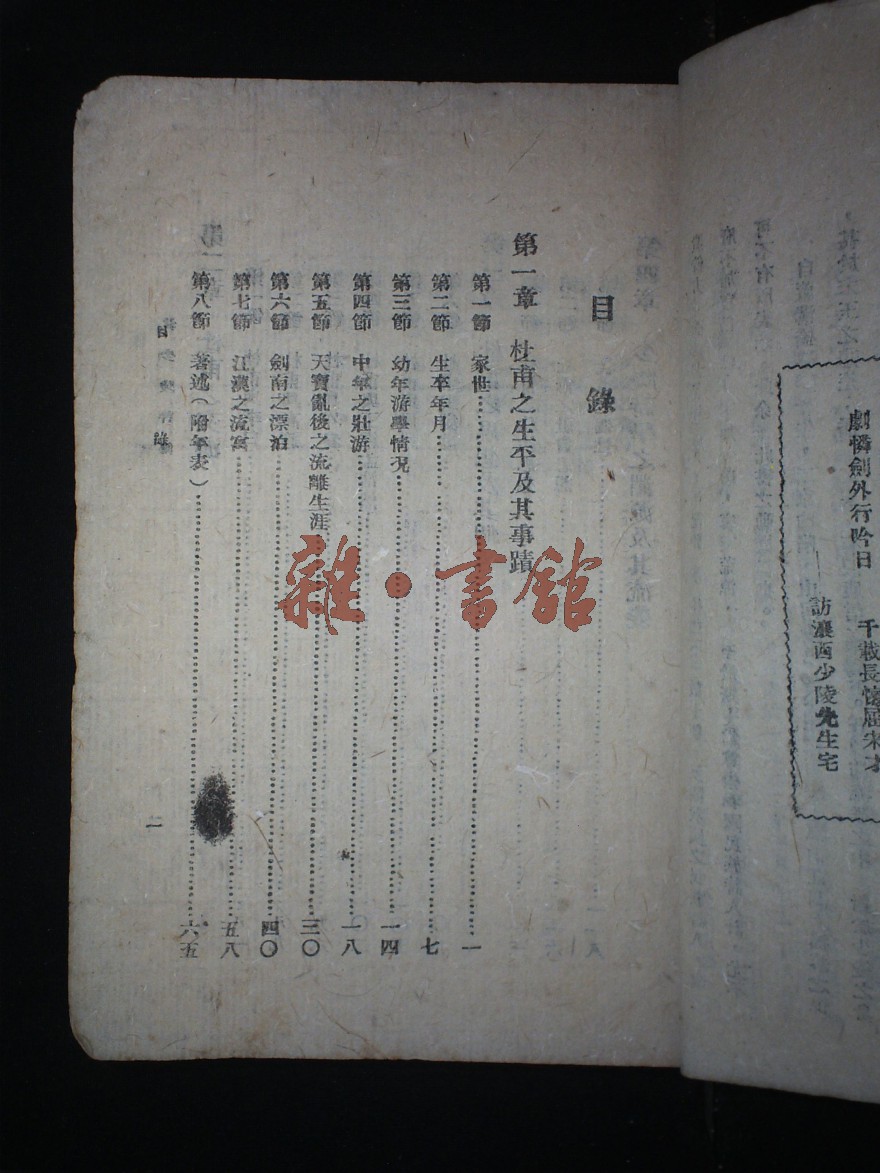 劇憐劍外行吟日
千載長懷屈宋才
訪瀼西少陵先生宅
目錄
第一章 杜甫之生平及其事蹟
第一節 家世…………一
第二節 生卒年月…………七
第三節 幼年游學情況…………一四
第四節 中年之壯游…………一八
第五節 天寶亂後之流離生涯…………三〇
第六節 劍南之漂泊…………四〇
第七節 江漢之流寓…………五八
第八節 著述(附年表)…………六五
目錄
一
雜·書館